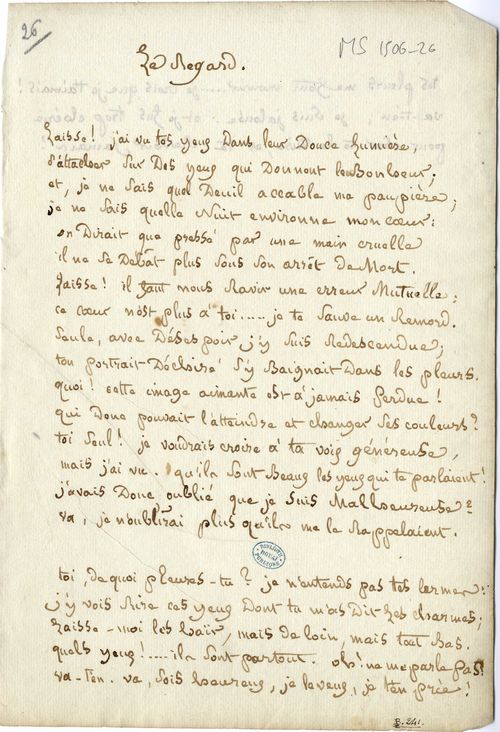 26
MS 1506-26
Le Regard.
Laisse ! j'ai vu tes yeux Dans leur Douce Lumière,
s'attacher sur Des yeux qui Donnent le Bonheur ;
et, je ne sais quel Deuil accable ma paupière ;
je ne sais quelle Nuit environne mon cœur :
on Dirait que pressé par une main cruelle
il ne se Débat plus sous son arrêt de Mort.
Laisse ! il faut nous Ravir une erreur Mutuelle ;
ce cœur n'est plus à toi ..... je te sauve un Remord.
Seule, avec Désespoir j'y suis Redescendue ;
ton portrait Déchiré s'y Baignait Dans les pleurs.
quoi ! cette image aimante est à jamais perdue !
qui Donc pouvait l'atteindre et changer ses couleurs ?
toi seul ! je voudrais croire à ta voix généreuse,
mais j'ai vu. qu'ils sont Beaux les yeux qui te parlaient !
j'avais Donc oublié que je suis Malheureuse ?
va, je n'oublirai plus qu'ils me le Rappelaient.
toi, de quoi pleures-tu ? je n'entends pas tes larmes :
j'y vois Rire ces yeux Dont tu m'as Dit Les charmes ;
Laisse-moi les haïr, mais de loin, mais tout Bas.
quels yeux ! .... ils sont partout. oh ! ne me parle pas !
va-t'en. va, sois heureux, je le veux, je t'en prie !
B. 241.